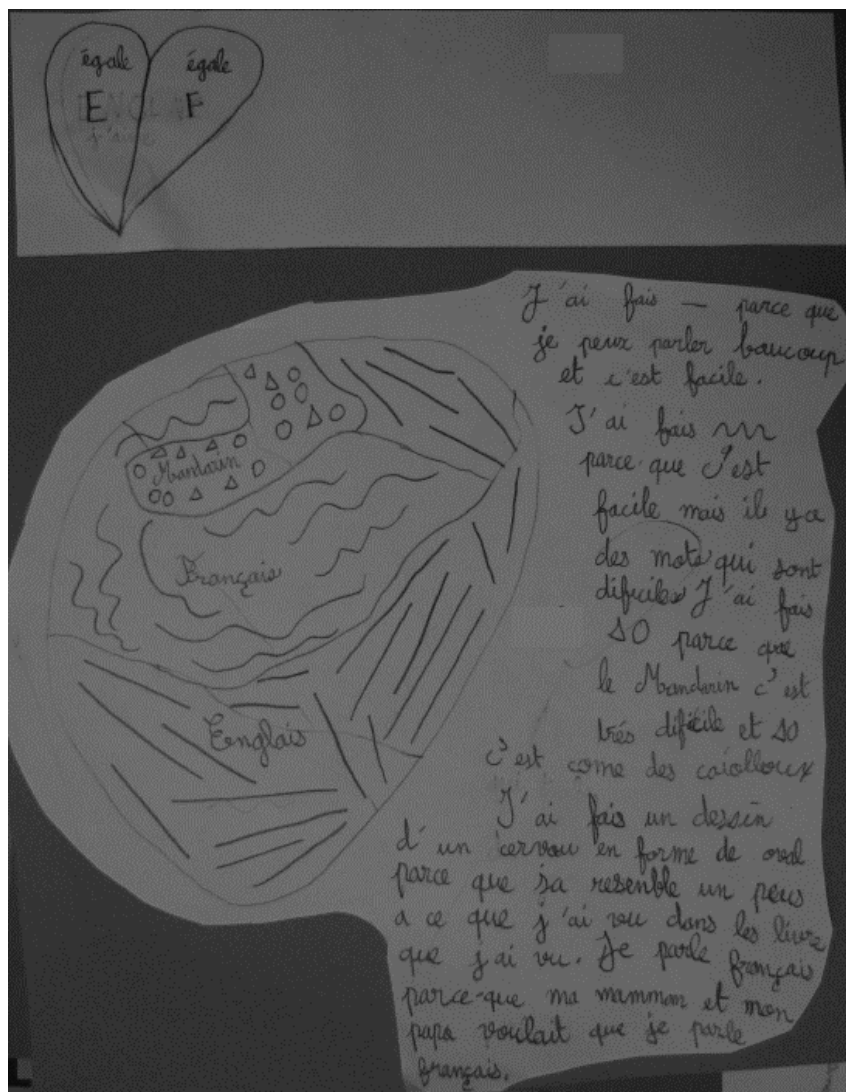 égale égale
E F
j'aime
J'ai fais — parce que
je peux parler baucoup
et c'est facile.
J'ai fais
parce que c'est
facile mais il y a
des mots qui sont
dificiles J'ai fais
△○ parce que
le Mandarin c'est
trés dificile et △○
c'est come des caiolloux
J'ai fais un dessin
d'un cervau en forme de oval
parce que sa resenble un peus
a ce que j'ai vu dans les livre
que j'ai vu. Je parle français
parce-que ma mamman et mon
papa voulait que je parle
français.
Mandarin
Français
Englais